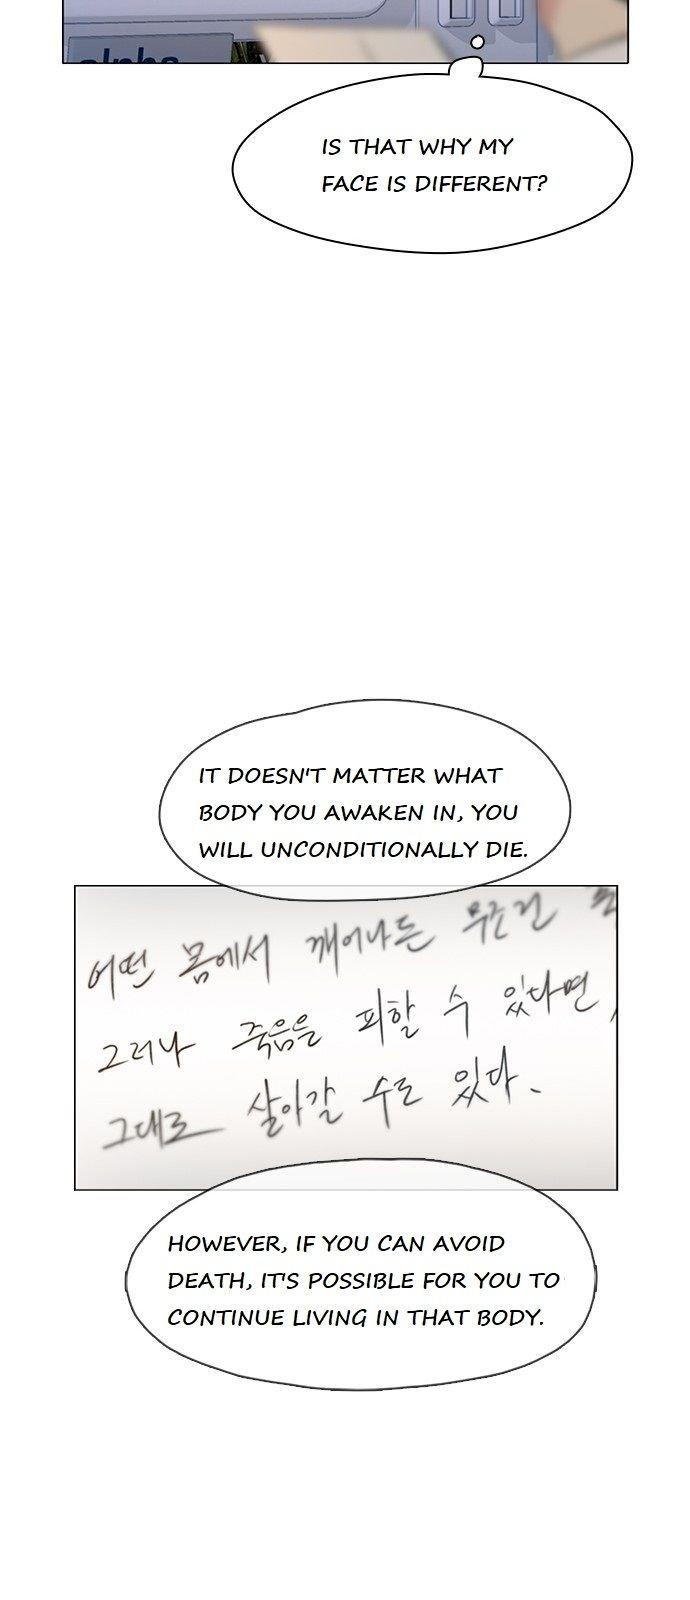 alpha
IS THAT WHY MY
FACE IS DIFFERENT?
IT DOESN'T MATTER WHAT
BODY YOU AWAKEN IN, YOU
WILL UNCONDITIONALLY DIE.
어떤 몸에서 깨어나든 무조건
그러나 죽음을 피할 수 있다면,
그대로 살아갈 수도 있다.
HOWEVER, IF YOU CAN AVOID
DEATH, IT'S POSSIBLE FOR YOU TO
CONTINUE LIVING IN THAT BODY.